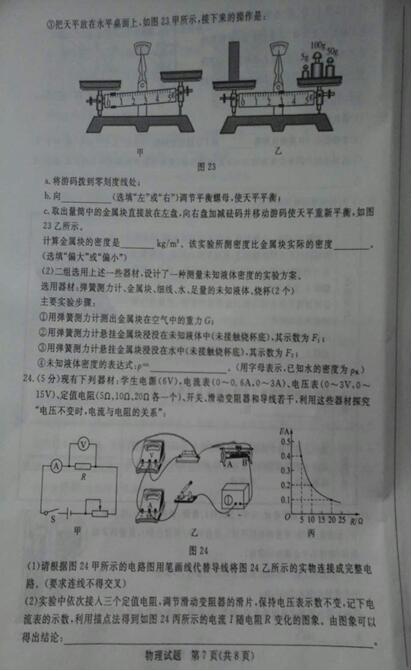 ③把天平放在水平桌面上,如图23甲所示,接下来的操作是:
5g 100g 50g
甲 乙
图23
a.将游码拨到零刻度线处;
b.向______(选填“左”或“右”)调节平衡螺母,使天平平衡;
c.取出量筒中的金属块直接放在左盘,向右盘加减砝码并移动游码使天平重新平衡,如图
23乙所示。
计算金属块的密度是______kg/m³。该实验所测密度比金属块实际的密度______。
(选填“偏大”或“偏小”)
(2)二组选用上述一些器材,设计了一种测量未知液体密度的实验方案。
选用器材:弹簧测力计、金属块、细线、水、足量的未知液体、烧杯(2个)
主要实验步骤:
①用弹簧测力计测出金属块在空气中的重力G;
②用弹簧测力计悬挂金属块浸没在未知液体中(未接触烧杯底),其示数为F₁;
③用弹簧测力计悬挂金属块浸没在水中(未接触烧杯底),其示数为F₂;
④未知液体密度的表达式:ρ=______。(用字母表示,已知水的密度为ρ水)
24.(5分)现有下列器材:学生电源(6V),电流表(0~0.6A、0~3A)、电压表(0~3V、0~
15V)、定值电阻(5Ω、10Ω、20Ω各一个)、开关、滑动变阻器和导线若干,利用这些器材探究
“电压不变时,电流与电阻的关系”:
V
A R
S
甲
A B
乙
I/A
0.5
0.4
0.3
0.2
0.1
0 5 10 15 20 25 R/Ω
丙
图24
(1)请根据图24甲所示的电路图用笔画线代替导线将图24乙所示的实物连接成完整电
路。(要求连线不得交叉)
(2)实验中依次接入三个定值电阻,调节滑动变阻器的滑片,保持电压表示数不变,记下电
流表的示数,利用描点法得到如图24丙所示的电流I随电阻R变化的图象。由图象可以
得出结论:______
物理试题 第7页(共8页)